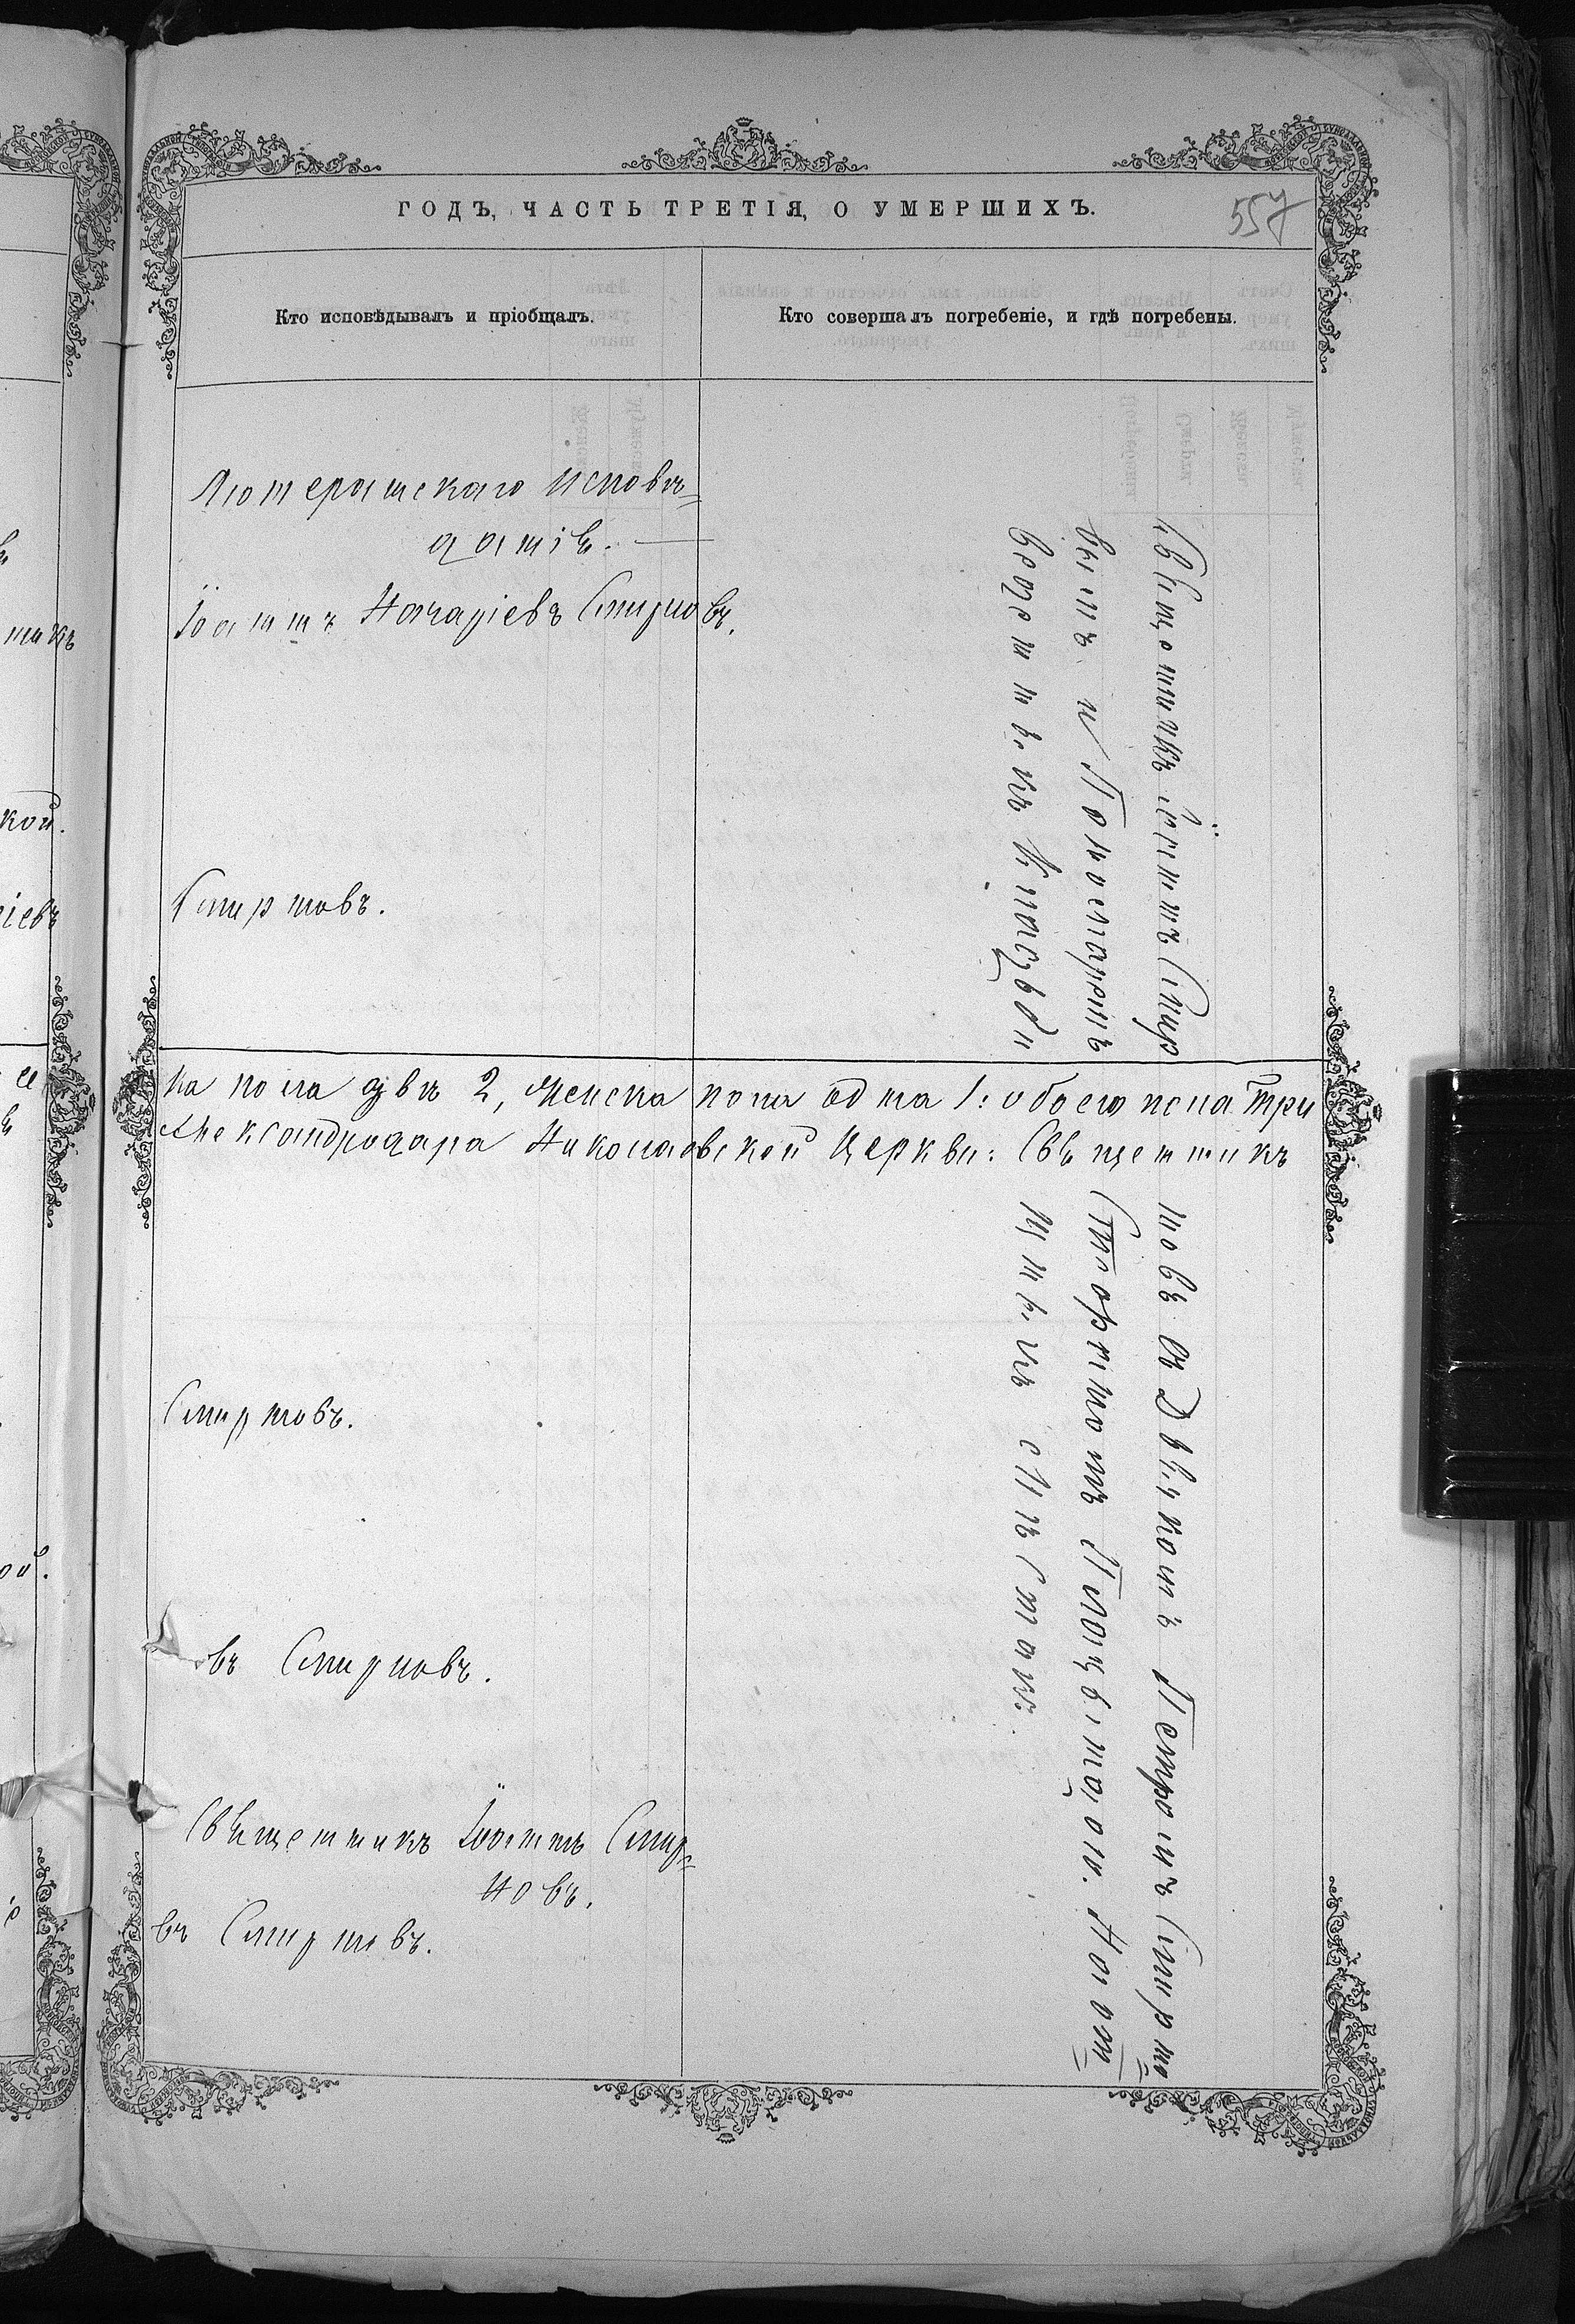 ГОДЪ, ЧАСТЬ ТРЕТІЯ, О УМЕРШИХЪ.
557
Кто исповѣдывалъ и пріобщалъ.
Кто совершалъ погребеніе, и гдѣ погребены.
Лютеранскаго исповѣ=
даніѣ.
Іоаннъ Назаріевъ Смирновъ.
Смирновъ.
Священникъ Іоаннъ Смир
вымъ и Пономаремъ
веденнѣмъ кладби
на пола двѣ 2, женска пола одна 1: обоего пола три
Александродара Николаевской Церкви: Свѣщенникъ
Смирновъ.
въ Смирновъ.
Свѣщенникъ Іоаннъ Смир=
новъ.
въ Смирновъ.
новъ съ Дьячкомъ Петромъ Смирно
На от=
щнѣмъ мѣстѣ.